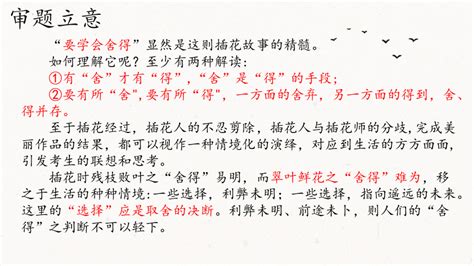 审题立意
“要学会舍得”显然是这则插花故事的精髓。
如何理解它呢？至少有两种解读：
①有“舍”才有“得”，“舍”是“得”的手段；
②要有所“舍",要有所“得"，一方面的舍弃，另一方面的得到，舍、
得并存。
至于插花经过，插花人的不忍剪除，插花人与插花师的分歧,完成美
丽作品的结果，都可以视作一种情境化的演绎，对应到生活的方方面面，
引发考生的联想和思考。
插花时残枝败叶之“舍得”易明，而翠叶鲜花之“舍得”难为，移
之于生活的种种情境:一些选择，利弊未明；一些选择，指向遥远的未来。
这里的“选择”应是取舍的决断。利弊未明、前途未卜，则人们的“舍
得”之判断不可以轻下。